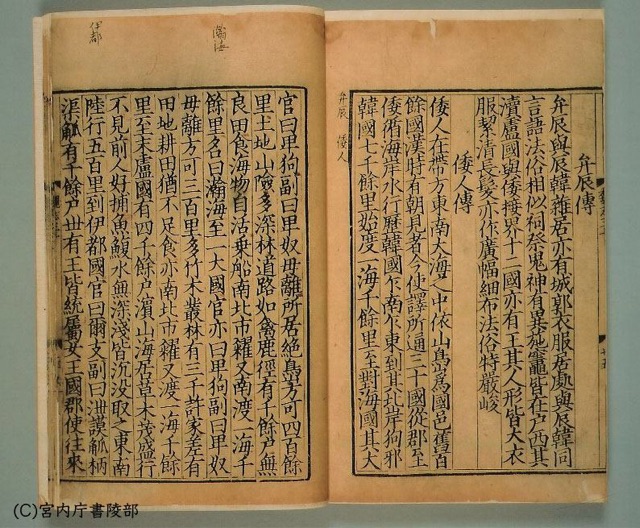 弁辰傳
弁辰與辰韓雜居亦有城郭衣服居處與辰韓同
言語法俗相似祠祭鬼神有異施竈皆在戶西其
瀆盧國與倭接界十二國亦有王其人形皆大衣
服絜清長髮亦作廣幅細布法俗特嚴峻
倭人傳
倭人在帶方東南大海之中依山島爲國邑舊百
餘國漢時有朝見者今使譯所通三十國從郡至
倭循海岸水行歷韓國乍南乍東到其北岸狗邪
韓國七千餘里始度一海千餘里至對海國其大
弁辰 倭人
官曰卑狗副曰卑奴毋離所居絕島方可四百餘
里土地山險多深林道路如禽鹿徑有千餘戶無
良田食海物自活乗船南北市糴又南渡一海千
餘里名曰瀚海至一大國官亦曰卑狗副曰卑奴
毋離方可三百里多竹木叢林有三千許家差有
田地耕田猶不足食亦南北市糴又渡一海千餘
里至末盧國有四千餘戶濱山海居草木茂盛行
不見前人好捕魚鰒水無深淺皆沉没取之東南
陸行五百里到伊都國官曰爾支副曰泄謨觚柄
渠觚有千餘戶丗有王皆統屬女王國郡使往來
瀚海
伊都
(C)宮内庁書陵部